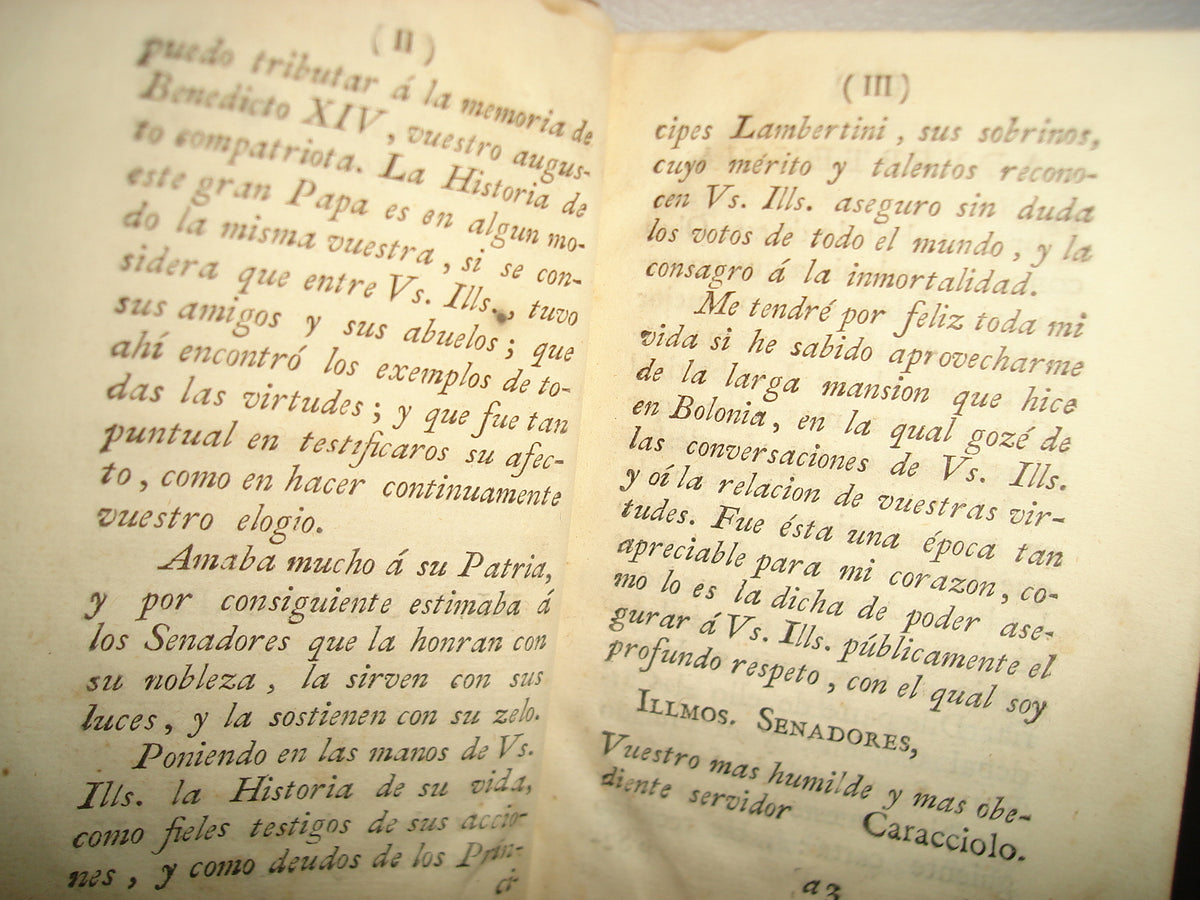 (II)
puedo tributar á la memoria de
Benedicto XIV, vuestro augus-
to compatriota. La Historia de
este gran Papa es en algun mo-
do la misma vuestra, si se con-
sidera que entre Vs. Ills., tuvo
sus amigos y sus abuelos; que
ahí encontró los exemplos de to-
das las virtudes; y que fue tan
puntual en testificaros su afec-
to, como en hacer continuamente
vuestro elogio.
Amaba mucho á su Patria,
y por consiguiente estimaba á
los Senadores que la honran con
su nobleza, la sirven con sus
luces, y la sostienen con su zelo.
Poniendo en las manos de Vs.
Ills. la Historia de su vida,
como fieles testigos de sus accio-
nes, y como deudos de los Prin-
ci-
(III)
cipes Lambertini, sus sobrinos,
cuyo mérito y talentos recono-
cen Vs. Ills. aseguro sin duda
los votos de todo el mundo, y la
consagro á la inmortalidad.
Me tendré por feliz toda mi
vida si he sabido aprovecharme
de la larga mansion que hice
en Bolonia, en la qual gozé de
las conversaciones de Vs. Ills.
y oí la relacion de vuestras vir-
tudes. Fue ésta una época tan
apreciable para mi corazon, co-
mo lo es la dicha de poder ase-
gurar á Vs. Ills. públicamente el
profundo respeto, con el qual soy
ILLMOS. SENADORES,
Vuestro mas humilde y mas obe-
diente servidor Caracciolo.
a2